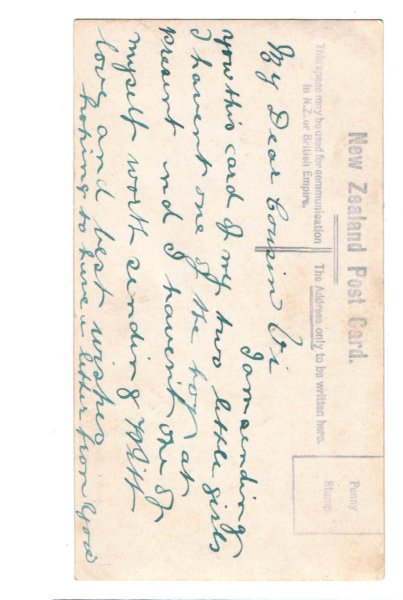 New Zealand Post Card.
This space may be used for communication
in N.Z. or British Empire.
The Address only to be written here.
Penny
Stamp.
My Dear Cousin Vi
I am sending
you this card of my two little girls
I havent one of the boy at
present and I havent one of
myself worth sending With
love and best wishes
hoping to have a letter from you